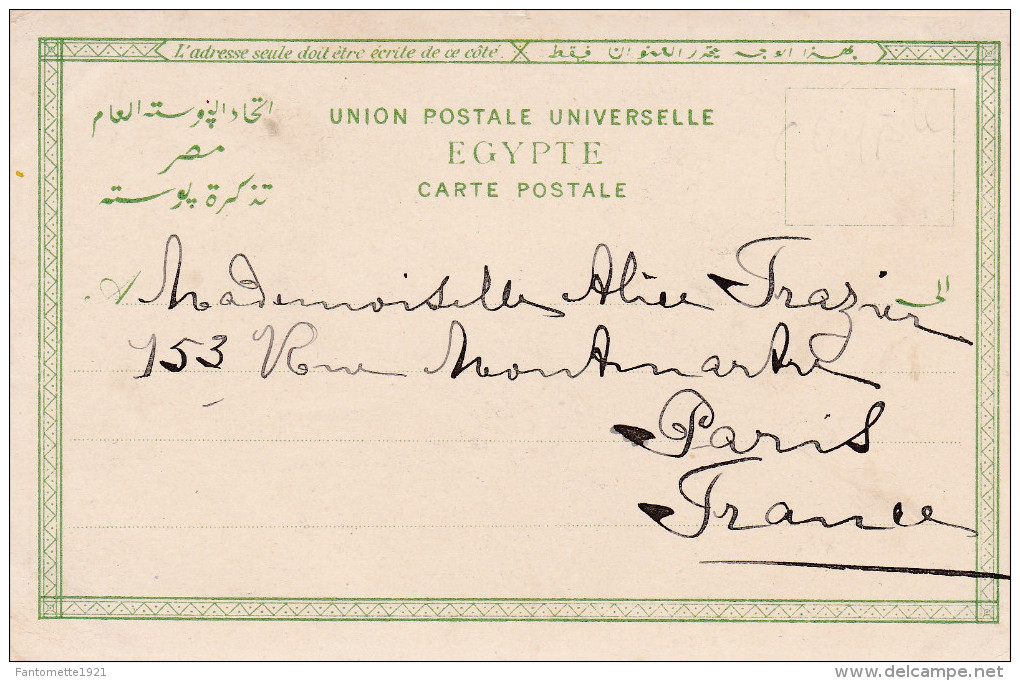 L'adresse seule doit être écrite de ce côté. بهذا الوجه يحرر العنوان فقط
اتحاد البوسته العام
مصر
تذكرة بوسته
UNION POSTALE UNIVERSELLE
EGYPTE
CARTE POSTALE
الى
à Mademoiselle Alice Frazier
153 Rue Montmartre
Paris
France
Fantomette1921
www.delcampe.net